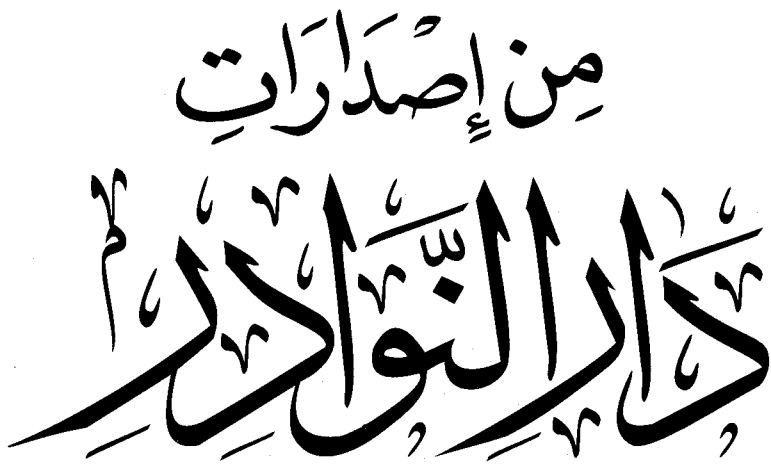 مِن إِصْدَارَاتِ
دَارِ النَّوَادِرِ